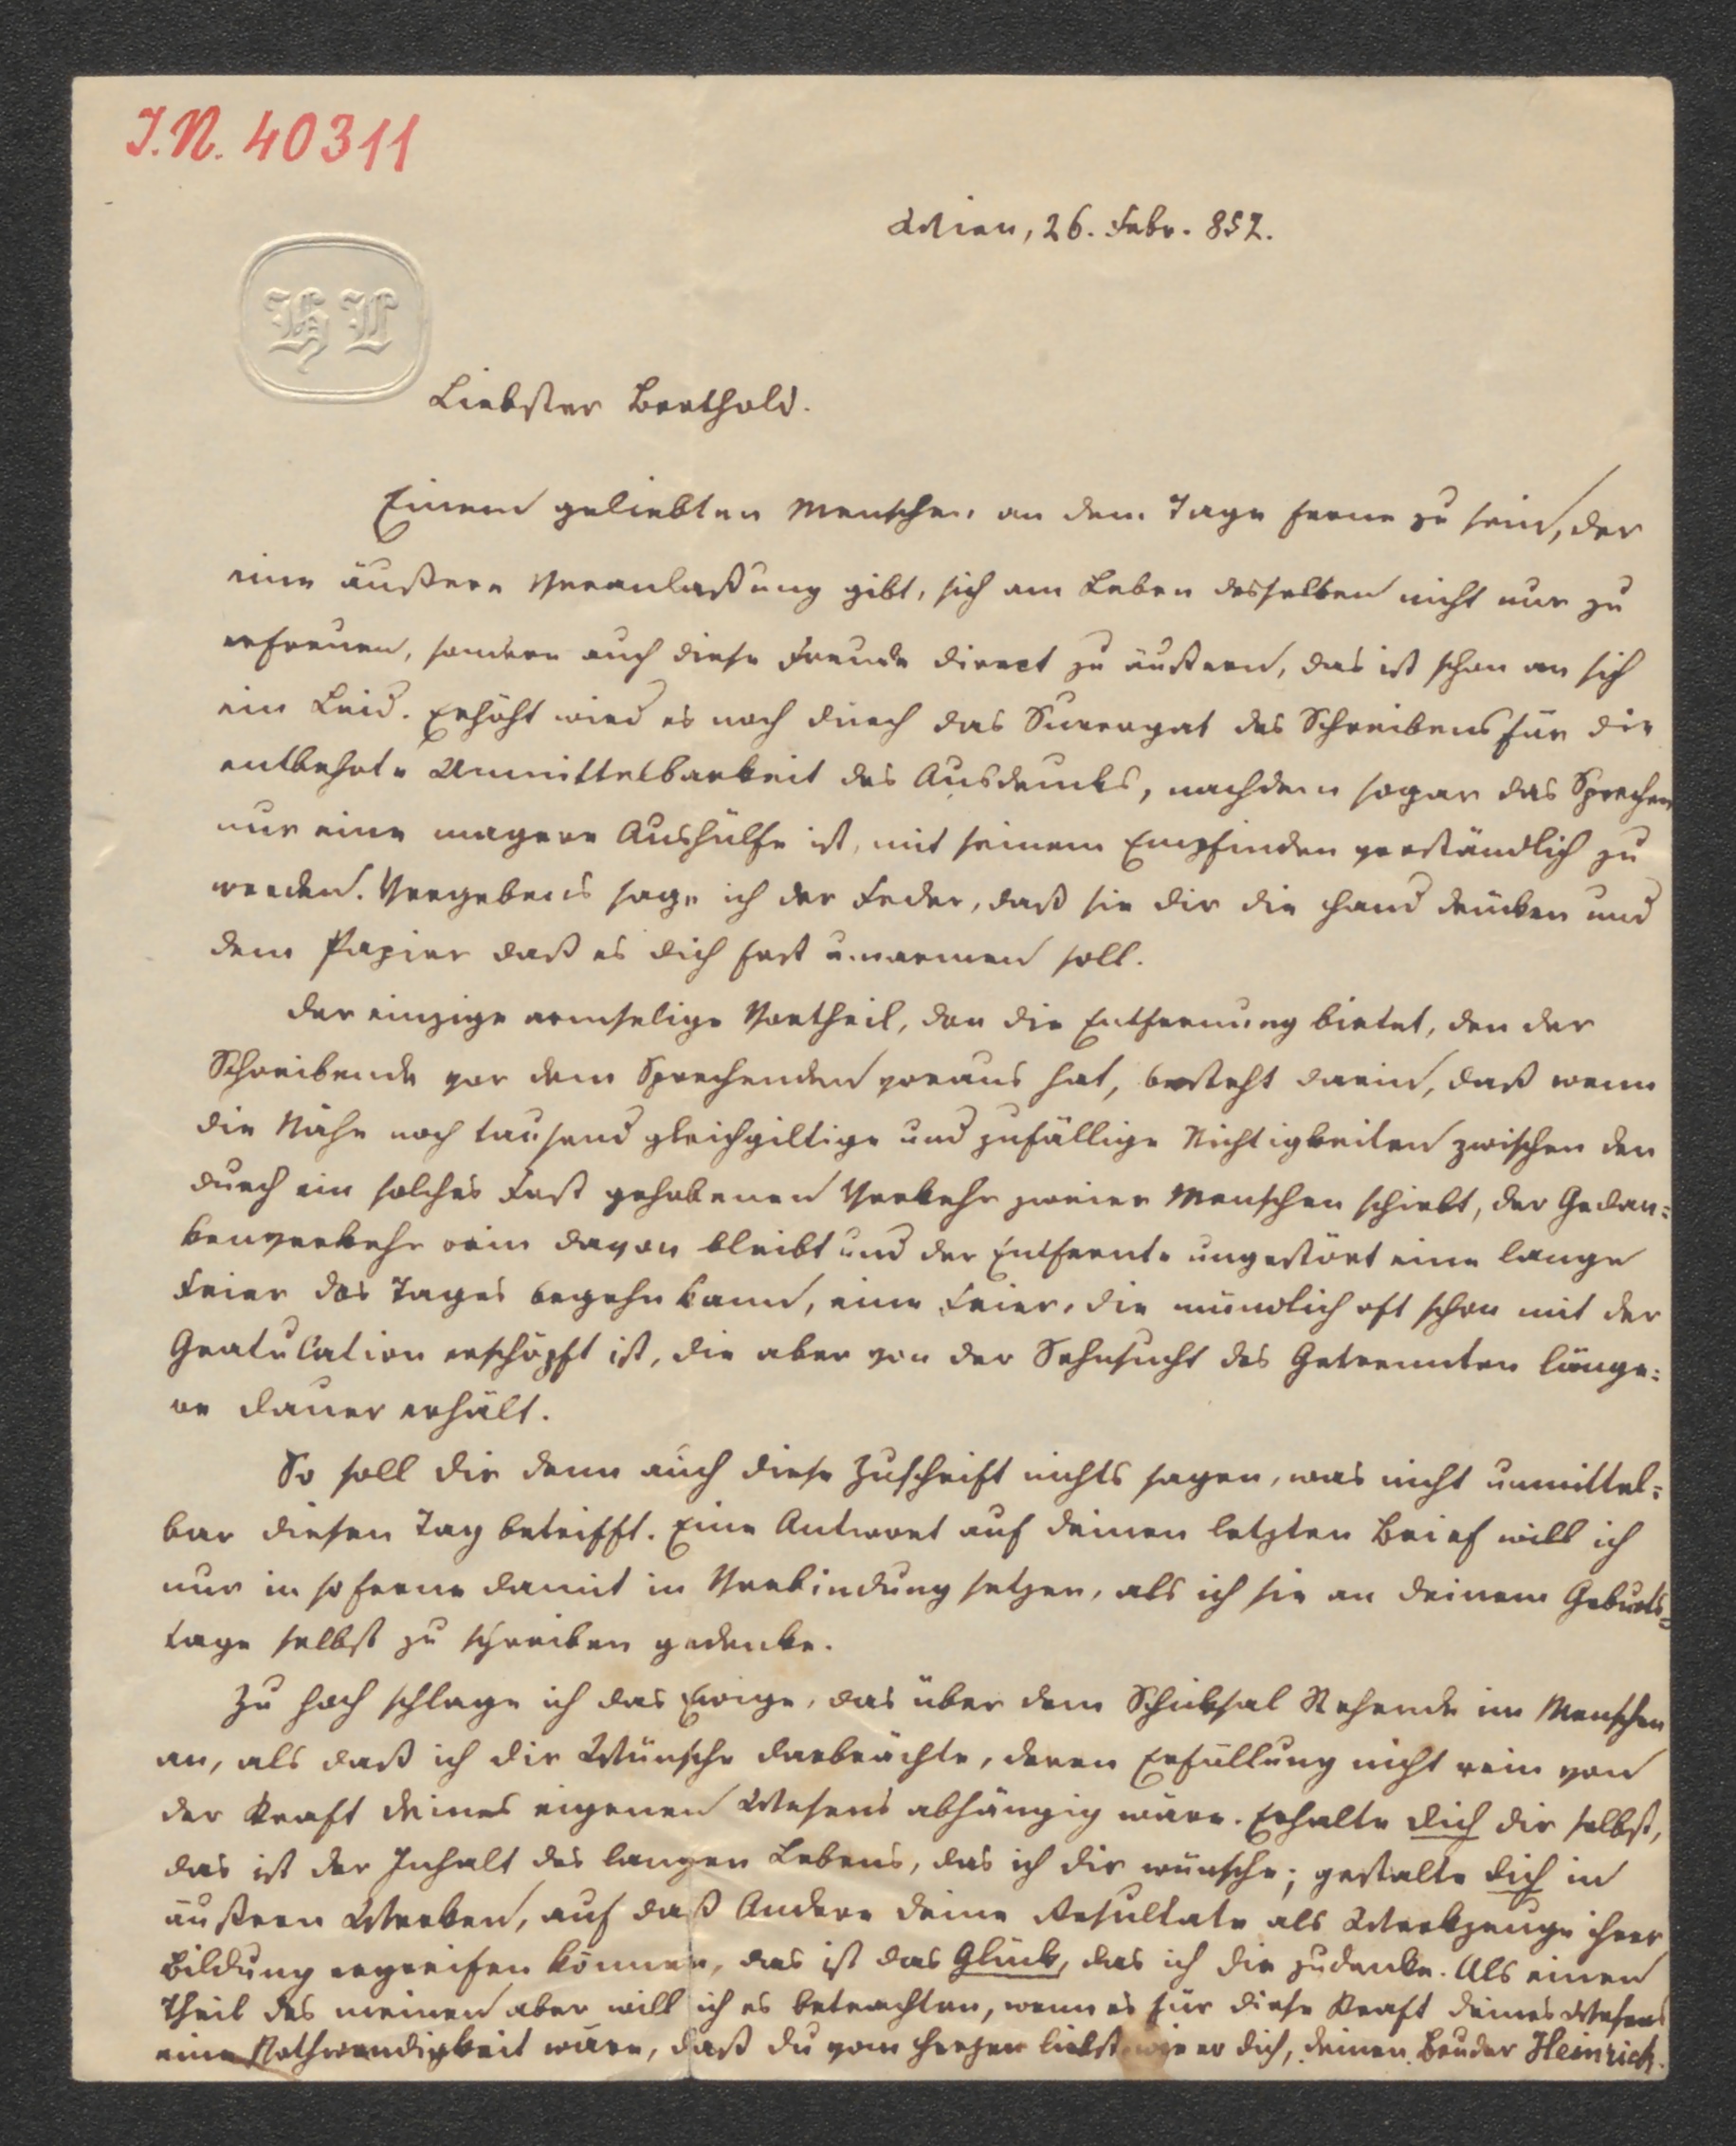 J.N. 40311
Wien, 26. Febr. 852.
HL
Liebster Berthold.
Einem geliebten Menschen an dem Tage ferne zu sein, der
eine äußere Veranlaßung gibt, sich am Leben desselben nicht nur zu
erfreuen, sondern auch diese Freude direct zu äußern, das ist schon an sich
ein Leid. Erhöht wird es noch durch das Surrogat des Schreibens für die
entbehrte Unmittelbarkeit des Ausdrucks, nachdem sogar das Sprechen
nur eine magere Aushülfe ist, mit seinem Empfinden verständlich zu
werden. Vergebens sage ich der Feder, daß sie dir die Hand drücken und
dem Papier daß es dich fest umarmen soll.
Der einzige armselige Vortheil, den die Entfernung bietet, den der
Schreibende vor dem Sprechenden voraus hat, besteht darin, daß wenn
die Nähe noch tausend gleichgiltige und zufällige Nichtigkeiten zwischen den
durch ein solches Fest gehobenen Verkehr zweier Menschen schiebt, der Gedan=
kenverkehr rein davon bleibt und der Entfernte ungestört eine lange
Feier des Tages begehn kann, eine Feier, die mündlich oft schon mit der
Gratulation erschöpft ist, die aber von der Sehnsucht des Getrennten länge=
re Dauer erhält.
So soll dir denn auch diese Zuschrift nichts sagen, was nicht unmittel=
bar diesen Tag betrifft. Eine Antwort auf deinen letzten Brief will ich
nur in soferne damit in Verbindung setzen, als ich sie an deinem Geburts=
tage selbst zu schreiben gedenke.
Zu hoch schlage ich das Ewige, das über dem Schicksal Stehende im Menschen
an, als daß ich dir Wünsche darbrächte, deren Erfüllung nicht rein von
der Kraft deines eigenen Wesens abhängig wäre. Erhalte dich dir selbst,
das ist der Inhalt des langen Lebens, das ich dir wünsche; gestalte dich in
äußern Werken, auf daß Andere deine Resultate als Werkzeuge ihrer
Bildung ergreifen können, das ist das Glück, das ich dir zudenke. Als einen
Theil des meinen aber will ich es betrachten, wenn es für diese Kraft deines Wesens
eine Nothwendigkeit wäre, daß du vom Herzen liebst wie er dich, deinen Bruder Heinrich.